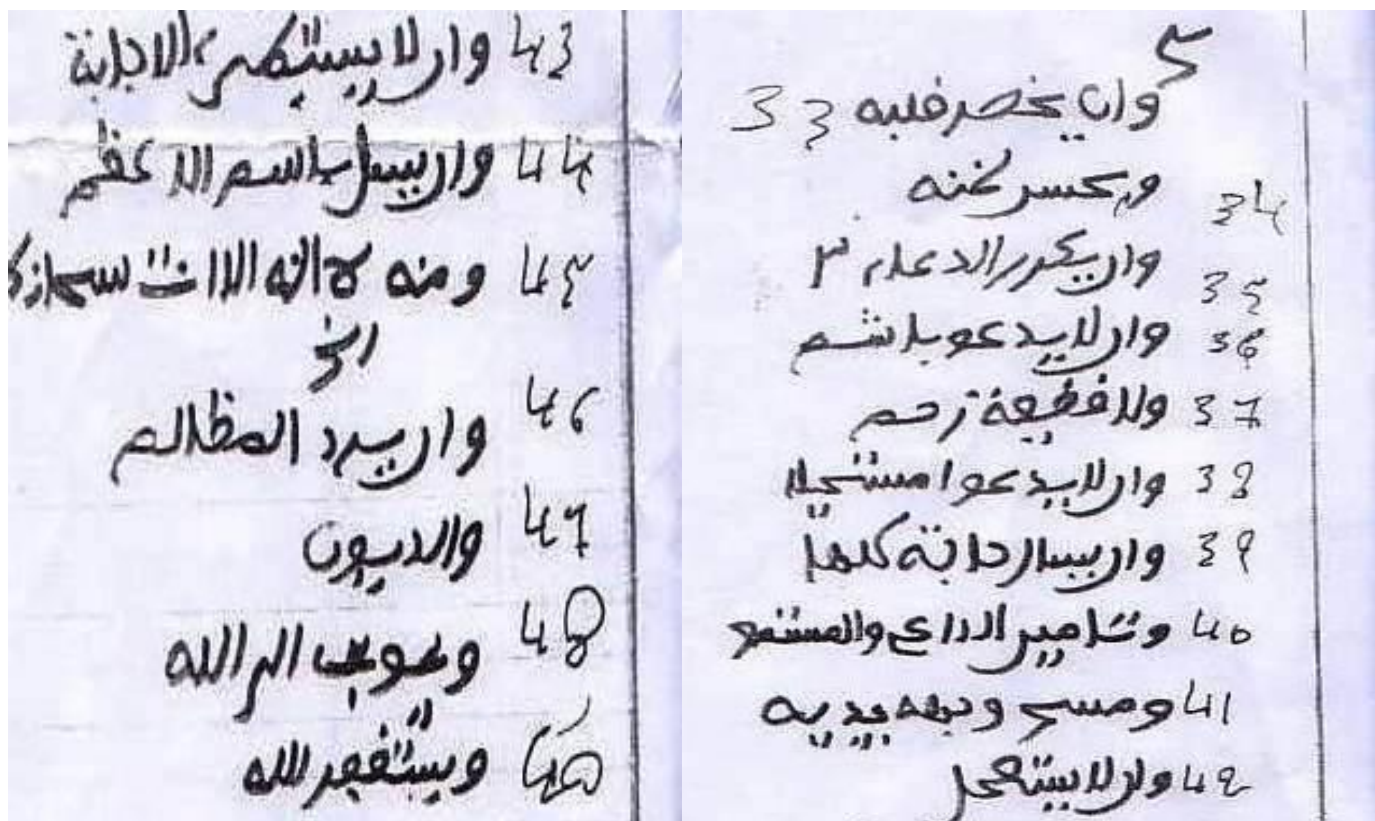 33 وان يحضر قلبه
34 ويحسن ظنه
35 وان يكرر الدعاء ٣
36 وان لا يدعو باثم
37 ولا قطيعة رحم
38 وان لا يدعوا مستحيلا
39 وان يسال حاجته كلها
40 وتامين الداعي والمستمع
41 ومسح وجهه بيديه
42 وان لا يستعجل
43 وان لا يستبطىء الاجابة
44 وان يسل باسم الاعظم
45 ومنه لا اله الا انت سبحانك
الخ
46 وان يرد المظالم
47 والديون
48 ويتوب الى الله
ويستغفر لله